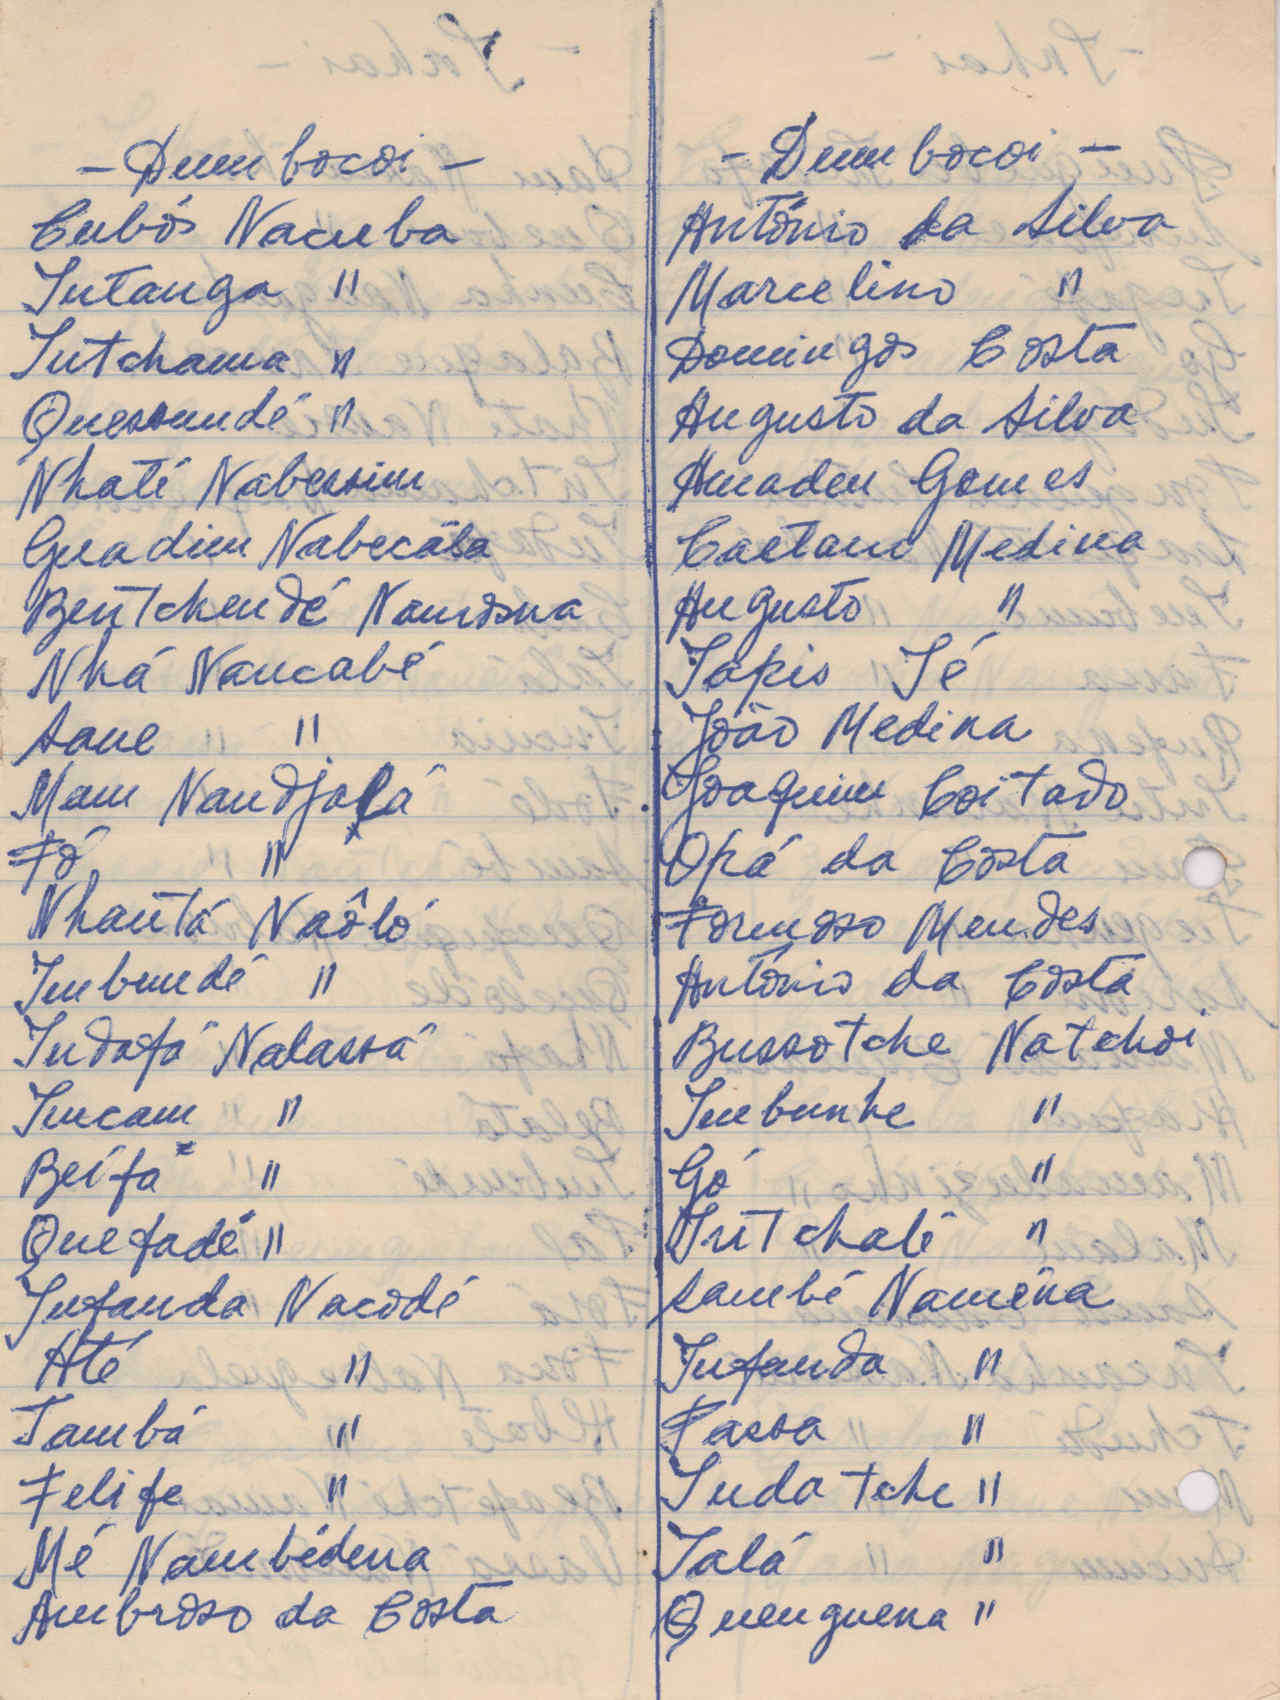 - Dumbocoi -
Cubós Nacuba
Intanga "
Intchama "
Quessundé "
Nhaté Nabessim
Guadim Nabecába
Bentchendé Namona
Nhá Nancabé
Sane "
Mam Nandjalá
Fó "
Nhantá Naôló
Imbundé "
Indafá Nalassá
Incam "
Beifa "
Quefadé "
Infanda Nacodé
Até "
Tambá "
Felife "
Mé Nambédna
Ambroso da Costa
- Dumbocoi -
António da Silva
Marcelino "
Domingos Costa
Augusto da Silva
Amadeu Gomes
Caetano Medina
Augusto "
Japis Té
João Medina
Joaquim Coitado
Opá da Costa
Formoso Mendes
António da Costa
Bussotche Natchoi
Imbunhe "
Gó "
Intchalé "
Sambé Naména
Infanda "
Passa "
Indatche "
Talá "
Quenguena "